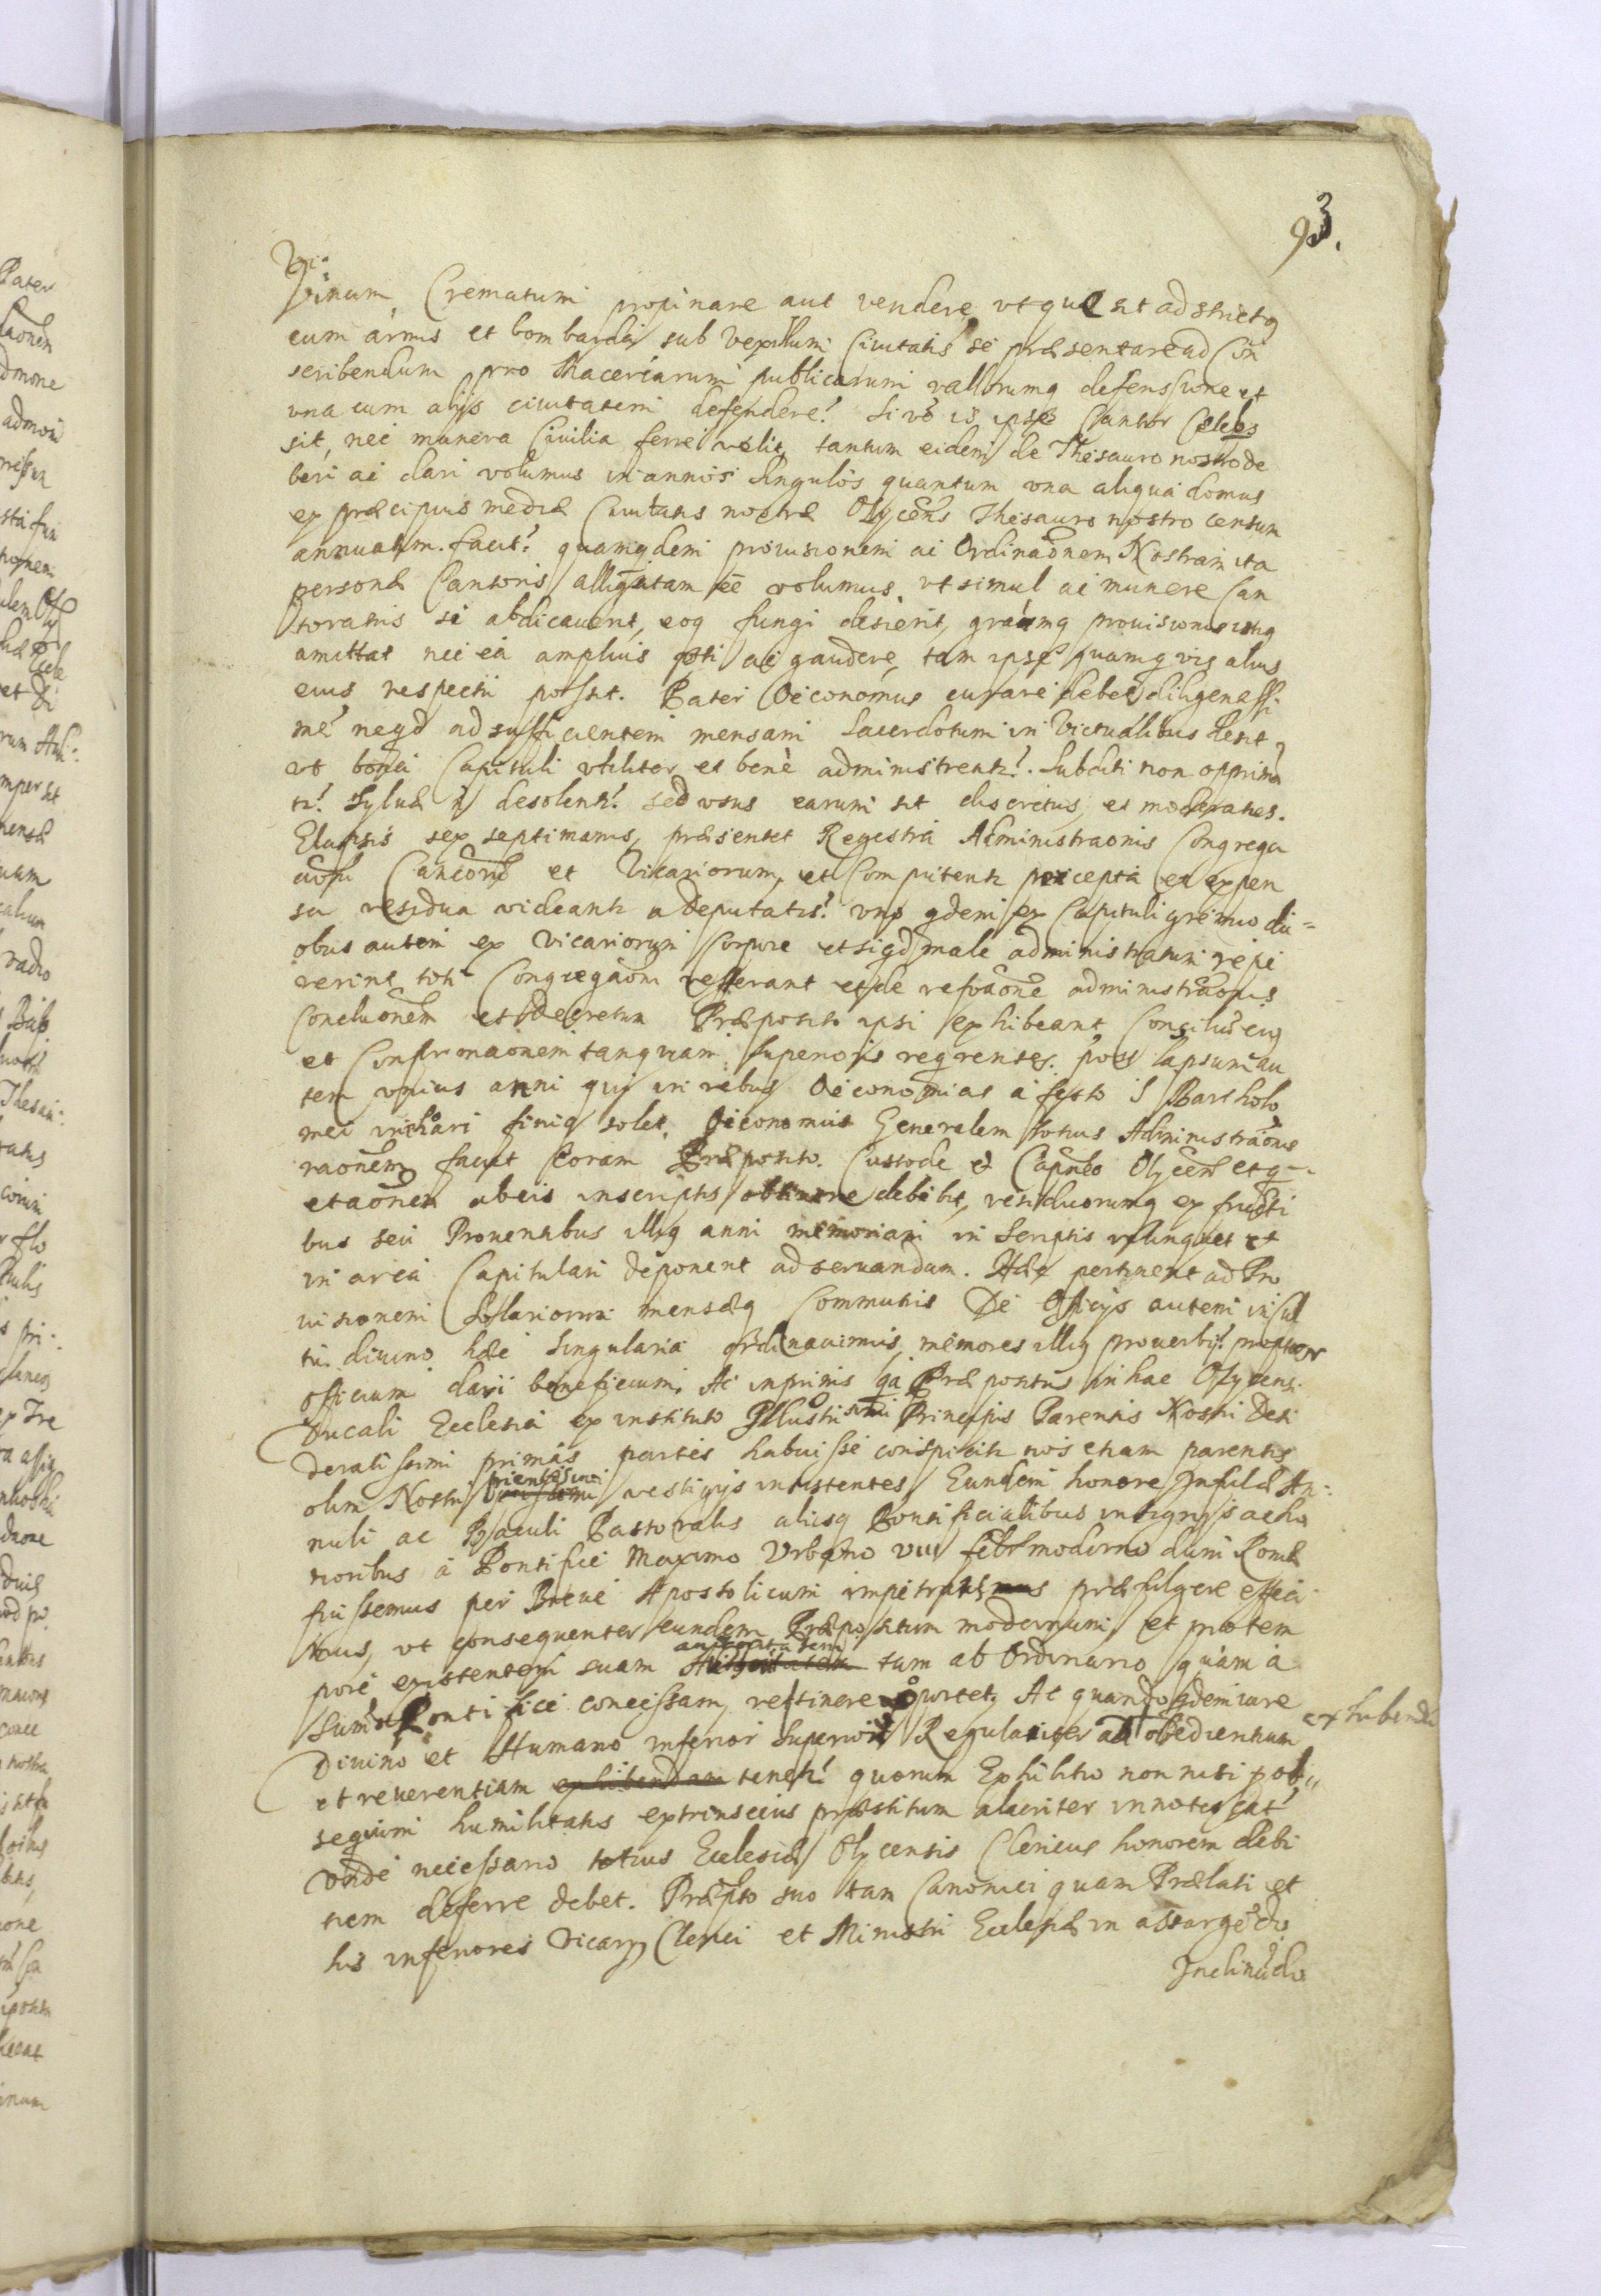 93.
Vinum Crematum propinare aut vendere, vtque sit adstrictq
cum armis et bombarda sub Vexillum Ciuitatis se præsentare ad Con
scribendum pro Maceriarum publicarum vallorumq defenssione et
vna cum alijs ciuitatem defendere. Si vo is ipse Cantor Celebs
sit, nec munera Ciuilia ferre velit, tantum eidem de Thesauro nostro de
beri ac dari volumus in annos singulos quantum vna aliqua domus
ex præcipuis mediæ Ciuitatis nostræ Olycens Thesauro nostro censum
annuatim facit. quamqdem prouisionem ac Ordinaonem Nostram ita
personæ Cantoris alligatam ee volumus, vt simul ac munere Can
toratus se abdicauerit, eoq fungi desierit, gratiamq prouisionis istiq
amittat nec ea amplius poti ac gaudere, tam ipse quamq vis alius
eius respectu possit. Pater Oeconomus curare debet diligentissi
me neqd ad sufficientem mensam Sacerdotum in Victualibus desit,
vt bona Capituli vtiliter et benè administrentr. Subditi non opprima
tr. Syluæ n desolentr. sed vsus earum sit discretus et moderatus.
Elapsis sex septimanis, præsentet Regestra Administraonis Congrega
uoni Canconoru et Vicariorum, et Computentr percepta et expen
sa residua videantr a Deputatis. vno qdem ex Capituli gremio du=
obus autem ex Vicariorum Corpore et siqd male administratum repe
rerint, toti Congregaoni referant et de refoaone administraonis
Concluonem et Decretum Præposito ipsi exhibeant, Consiliu eiq
et Confirmaonem tanquam Superioris reqrentes. post lapsum au
tem vnius anni qui in rebus Oeconomias a festo S Bartholo
mei inchoari finiq solet. Oeconomus Generalem totius Administraonis
raonem faciet coram Præposito. Custode et Capitulo Olycens et q
etaonem ab eis in scriptis obtinere debebit, residuorumq ex fructi
bus seu Prouentibus illiq anni memoriam in Scriptis relinquet et
in arca Capitulari deponent ad seruandam. Hæc pertinent ad Pro
uisionem Scholariorum mensæq Communis De Officijs autem in sul
tu diuino hæc Singularia ordinauimus, memores illiq prouerbij. propter
officium dari beneficium. Ac inprimis qa Præpositus in hac Olycensi
Ducali Ecclesia ex instituto Illustrissimi Principis Parentis Nostri Desi
deratissimi primas partes habuisse conspicitr nos etiam parentis
olim Nostri pientissimi vestigijs insistentes Eundem honore Infulæ An:
nuli ac Baculi Pastoralis alijsq Pontificialibus insignijs ac ho
noribus a Pontifice Maximo Vrbano VIII felr moderno dum Romæ
fuissemus per Breue Apostolicum impetratis præfulgere effeci
mus, vt consequenter eundem Præpositum modernum et pro tem
pore existentem suam authoritatem tam ab Ordinario quàm a
Sumo Pontifice concessam, retinere oportet. Ac quando qdem iure
Diuino et Humano inferior Superiori Regulariter ad obedientiam
exhibendā
et reuerentiam exhibendam tenetr. quorum Exhibitio non nisi p ob"
sequium humilitatis extrinsecius præstitum alacriter innotescat
Vnde necessario totius Ecclesiæ Olycensis Clericus honorem debi
tum deferre debet. Præpto suo tam Canonici quam Prælati et
his inferiores Vicarij, Clerici et Ministri Ecclesiæ in assurgedo
Inclinado